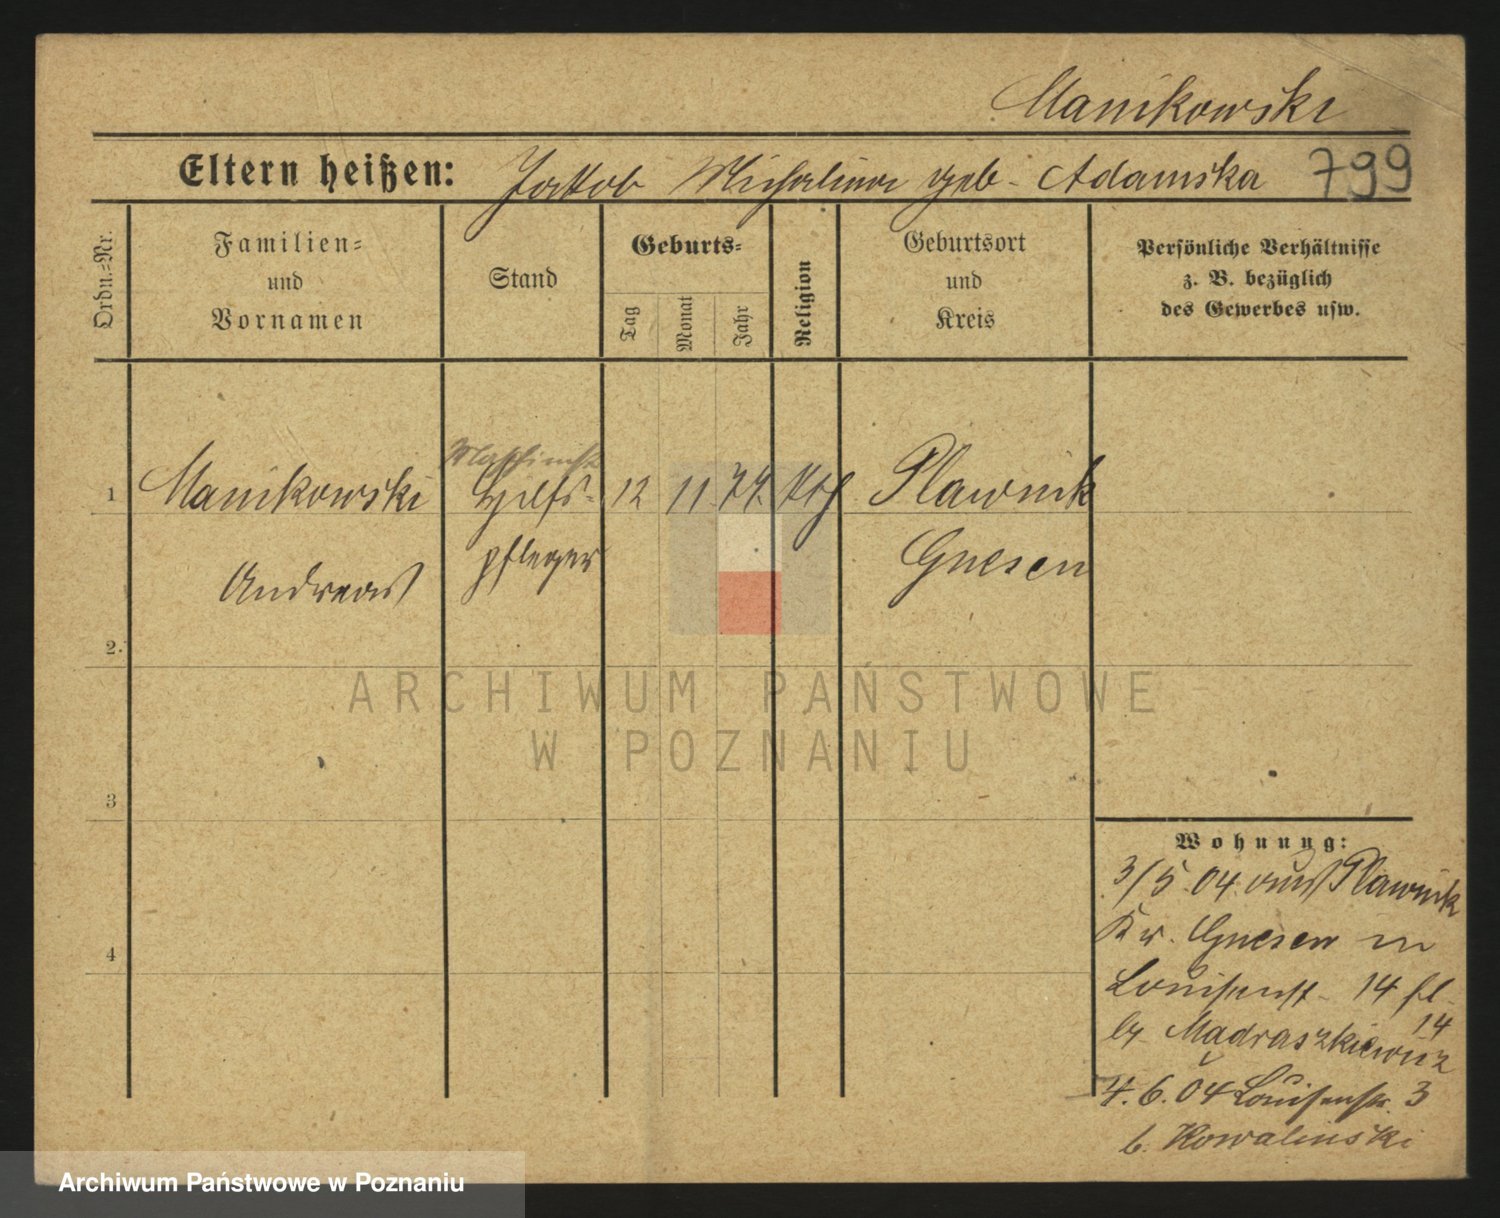 Manikowski
Eltern heißen: Jakob Michalina geb. Adamska 799
Ordn.=Nr.
Familien=
und
Vornamen
Stand
Geburts=
Tag
Monat
Jahr
Religion
Geburtsort
und
Kreis
Persönliche Verhältnisse
z. B. bezüglich
des Gewerbes usw.
Maschinist
1 Manikowski Hilfs- 12 11 74. Kth Plawnik
Andreas pfleger Gnesen
2.
3
4
ARCHIWUM PAŃSTWOWE
W POZNANIU
Wohnung:
3/5. 04. aus Plawnik
Kr. Gnesen in
Louisenst. 14
14
by Mądraszkiewicz
4. 6. 04 Louisenstr. 3
b. Kowalinski
Archiwum Państwowe w Poznaniu